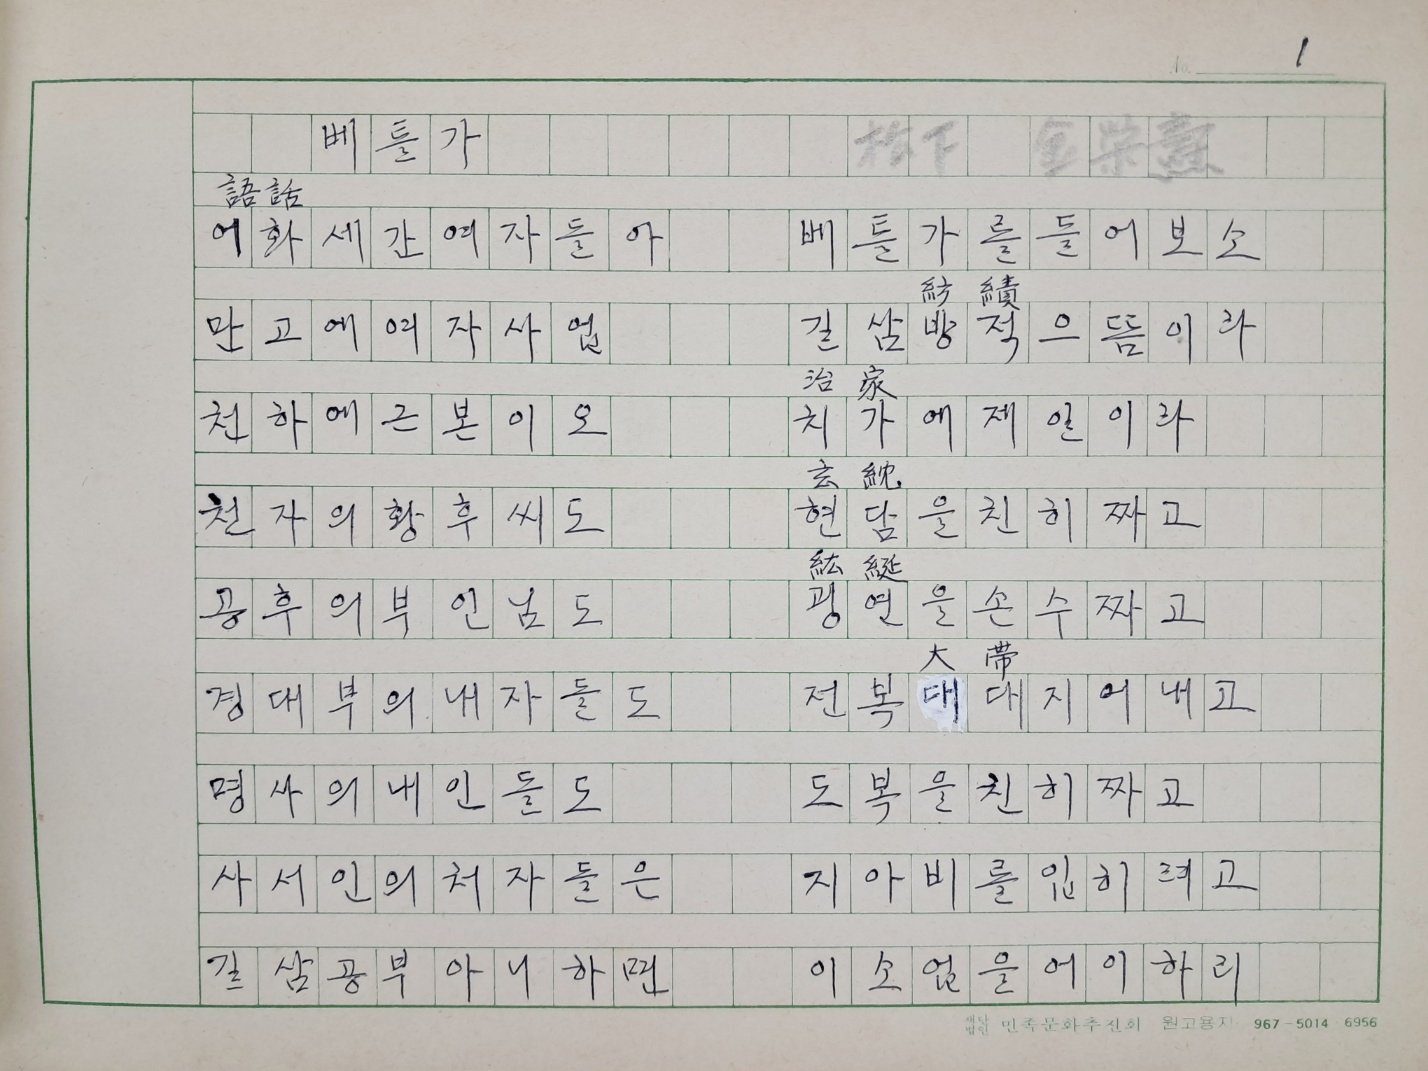 1
베틀가 松下 金榮
語話
어화세간여자들아 베틀가를들어보소
紡績
만고에여자사업 길삼방적으뜸이라
治家
천하에근본이오 치가에제일이라
玄紞
천자의황후씨도 현담을친히짜고
紘綖
공후의부인님도 굉연을손수짜고
大帶
경대부의내자들도 전복대대지어내고
명사의내인들도 도복을친히짜고
사서인의처자들은 지아비를입히려고
길삼공부아니하면 이소업을어이하리
재단법인 민족문화추진회 원고용지 967-5014 6956